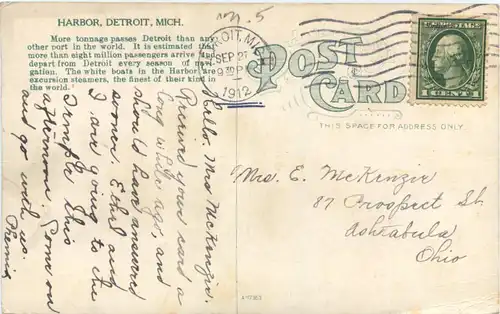 m. 5
HARBOR, DETROIT, MICH.
More tonnags passes Detroit than any
other port in the world. It is estimated that
more than eight million passengers arrive and
depart from Detroit every season of navi-
gation. The white boats in the Harbor are
excursion steamers, the finest of their kind in
the world.
DETROIT, MICH.
SEP 23
9 30 P
1912
POST
CARD
THIS SPACE FOR ADDRESS ONLY
1 CENT 1
Hello. Mrs McKenzie.
Recived your card a
long while ago, and
should have answered
sooner. Ethel and
I are going to the
Temple this
afternoon. Come on
and go with us.
Mrs. E. McKenzie
87 Prospect St.
Ashtabula
Ohio